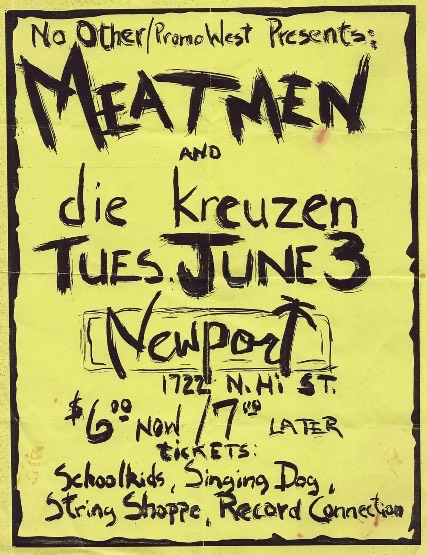 No Other/PromoWest Presents:
MEATMEN
AND
die kreuzen
TUES. JUNE 3
Newport
1722 N. Hi ST.
$6.00 NOW / 7.00 LATER
tickets:
Schoolkids, Singing Dog,
String Shoppe, Record Connection